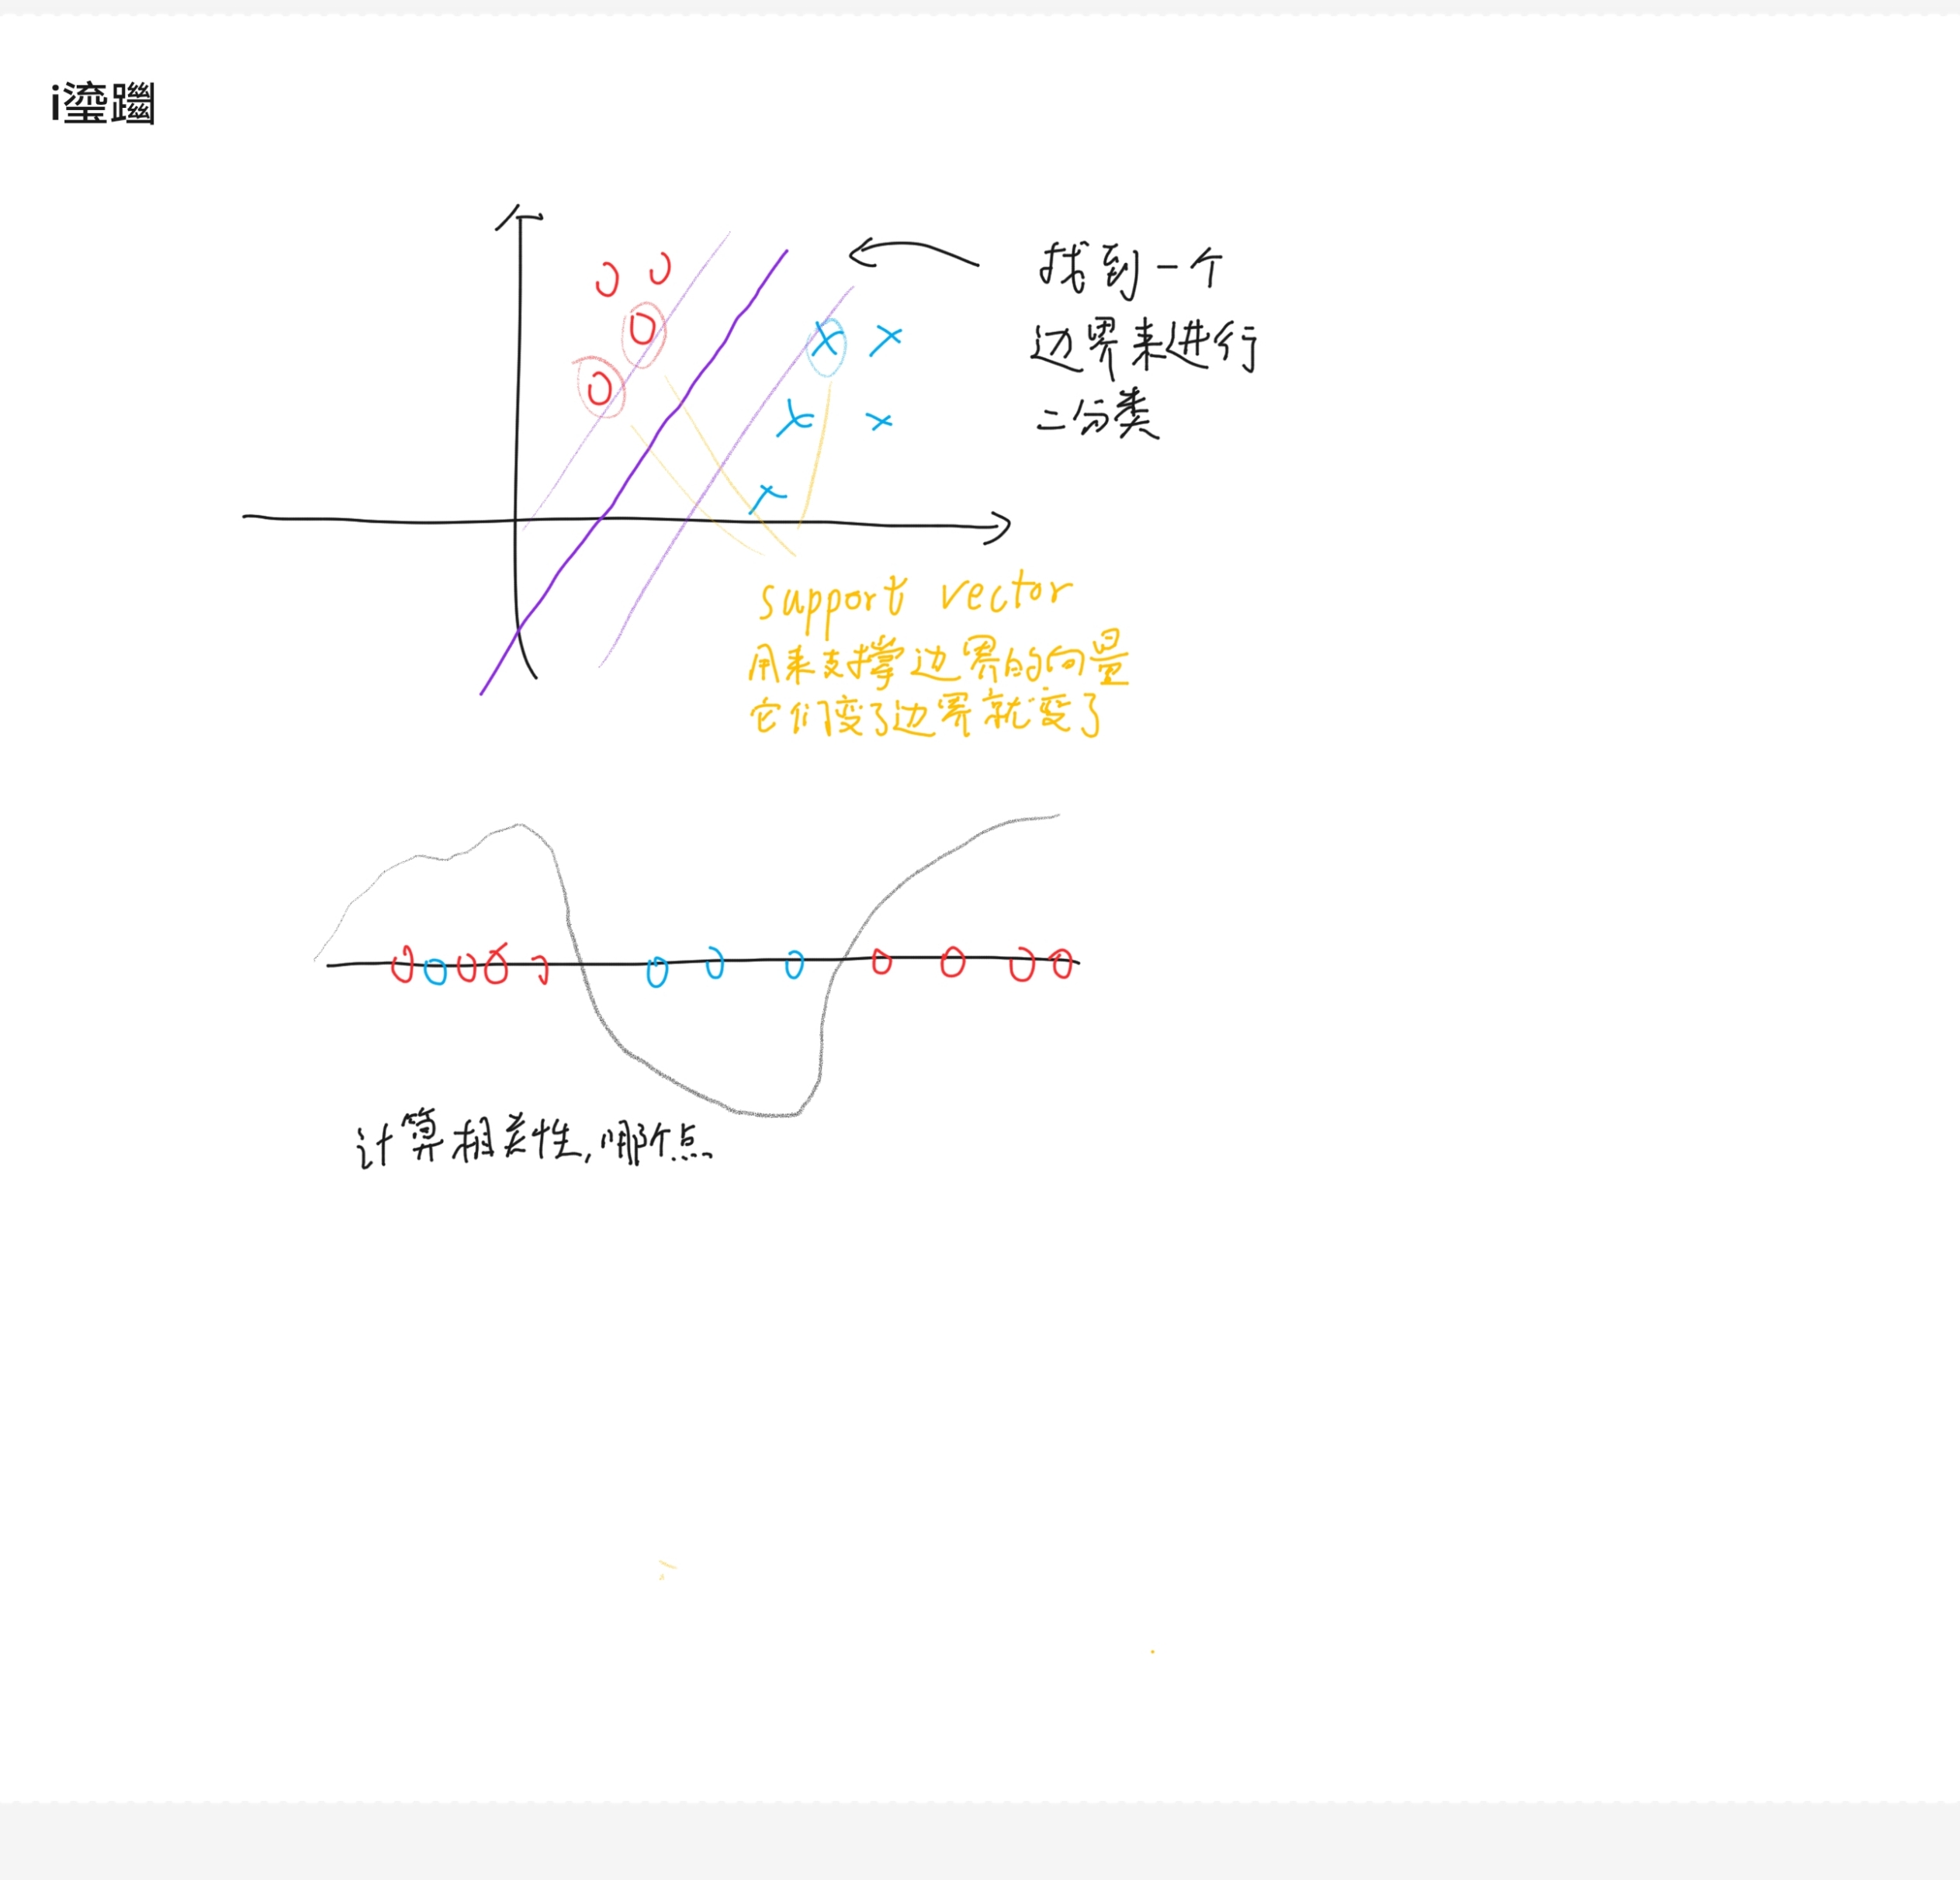 i瀅躢
找到一个
边界来进行
二分类
support vector
用来支撑边界的向量
它们变了边界就变了
计算相关性,哪个点